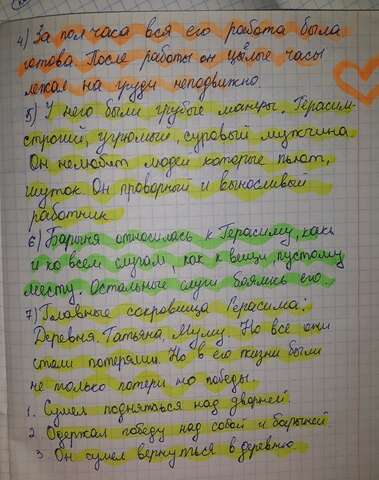 4) За пол часа вся его работа была
готова. После работы он цылые часы
лежал на груди неподвижно.
5) У него были грубые манеры. Герасим-
строгий, угрюмый, суровый мужчина
Он нелюбит людей которые пьют,
шуток. Он проворный и выносливый
работник
6) Барыня относилась к Герасиму, как
и ко всем слугам, как к вещи, пустому
месту. Остальные слуги боялись его.
7) Главные сокровища Герасима:
Деревня, Татьяна, Муму. Но все они
стали потерями. Но в его жизни были
не только потери но победы.
1. Сумел подняться над дворней.
2 Одержал победу над собой и барыней
3 Он сумел вернуться в деревню